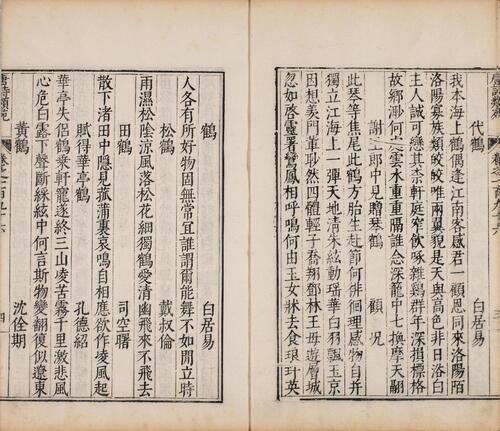 代鶴 白居易
我本海上鶴偶逢江南客感君一顧恩同來洛陽陌
洛陽寡族類皎皎唯兩翼貌是天與高色非日浴白
主人誠可戀其柰軒庭窄飲啄雜雞群年深損標格
故鄉渺何處雲水重重隔誰念深籠中七換摩天翮
謝王郎中見贈琴鶴 顧況
此琴等焦尾此鶴方胎生赴節何徘徊理感物自并
獨立江海上一彈天地清朱絃動瑤華白羽飄玉京
因想羨門輩眇然四體輕子喬翔鄧林王母遊層城
忽如啓靈署鸞鳳相呼鳴何由玉女牀去食琅玕英
鶴 白居易
人各有所好物固無常宜誰謂爾能舞不如閒立時
松鶴 戴叔倫
雨濕松陰涼風落松花細獨鶴愛清幽飛來不飛去
田鶴 司空曙
散下渚田中隱見菰蒲裏哀鳴自相應欲作凌風起
賦得華亭鶴 孔德紹
華亭失侶鶴乘軒寵遂終三山凌苦霧千里激悲風
心危白露下聲斷綵絃中何言斯物變翻復似遼東
黃鶴 沈佺期
唐詩類苑 卷之一百九十六 四